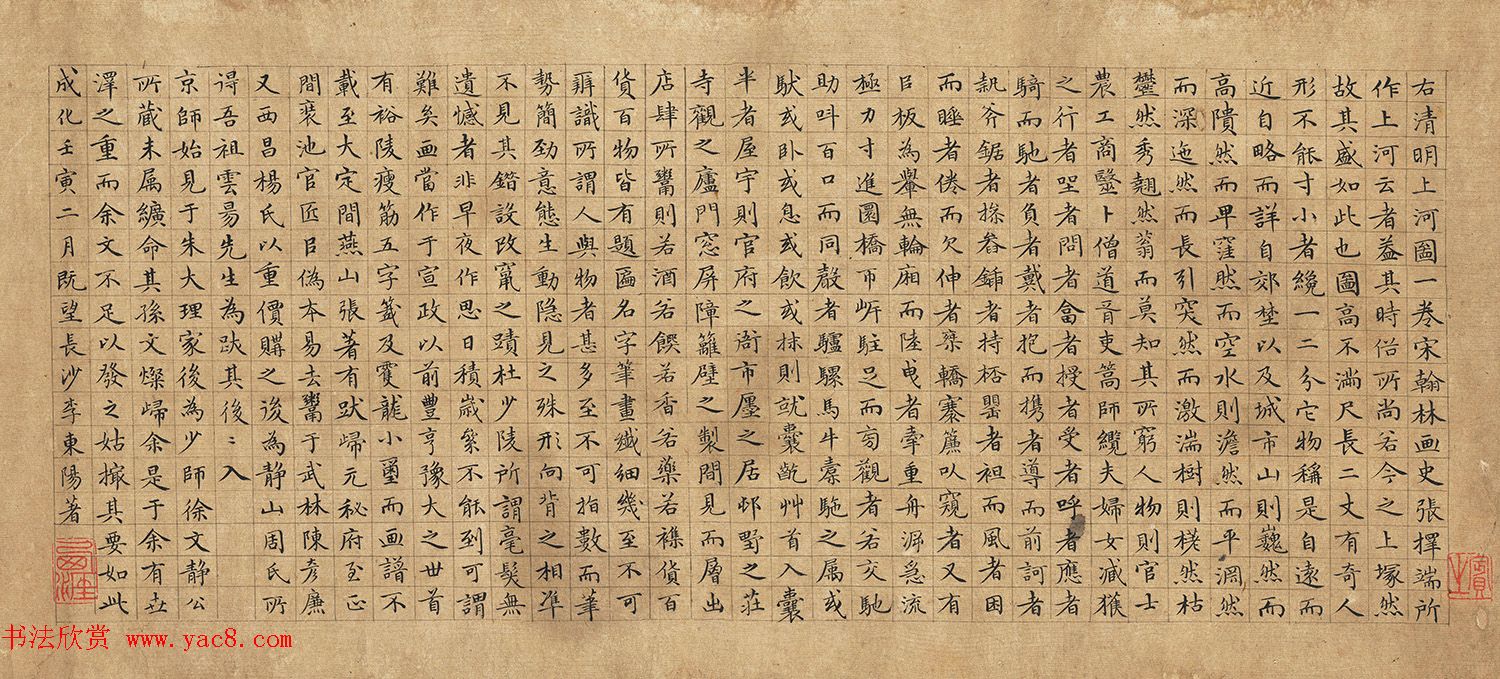 右清明上河圖一卷宋翰林画史張擇端所
作上河云者葢其時俗所尚若今之上塚然
故其盛如此也圖高不滿尺長二丈有奇人
形不能寸小者纔一二分它物稱是自遠而
近自略而詳自郊埜以及城市山則巍然而
高隤然而卑窪然而空水則澹然而平淵然
而深迤然而長引突然而激湍樹則槎然枯
鬱然秀翹然蓊而莫知其所窮人物則官士
農工商醫卜僧道胥吏篙師纜夫婦女臧獲
之行者坐者問者畣者授者受者呼者應者
騎而馳者負者戴者抱而攜者導而前訶者
執斧鋸者操畚鍤者持桮罌者袒而風者困
而睡者倦而欠伸者乘轎搴簾以窺者又有
以板為轝無輪廂而陸曳者牽重舟泝急流
極力寸進圜橋帀岸駐足而旁觀者若交馳
助叫百口而同聲者驢騾馬牛橐駞之属或
馱或卧或息或飲或秣則就囊齕艸首入囊
半者屋宇則官府之衙市廛之居邨野之莊
寺觀之廬門窓屏障籬壁之製間見而層出
店肆所鬻則若酒若饌若香若藥若襍貨百
貨百物皆有題匾名字筆畫纖細幾至不可
辨識所謂人與物者甚多至不可指數而筆
勢簡勁意態生動隐見之殊形向背之相凖
不見其錯設改竄之蹟杜少陵所謂毫髮無
遺憾者非早夜作思日積歲絫不能到可謂
難矣画當作于宣政以前豐亨豫大之世首
有裕陵瘦筋五字籤及䨇龍小璽而画譜不
載至大定間燕山張著有跋歸元秘府至正
間裝池官匠以偽本易去鬻于武林陳彦廉
又西昌楊氏以重價購之後為静山周氏所
得吾祖雲昜先生為跋其後二入
京師始見于朱大理家後為少師徐文靜公
所藏未属纊命其孫文燦歸余是于余有世
澤之重而余文不足以發之姑擬其要如此
成化壬寅二月既望長沙李東陽著
書法欣赏 www.yac8.com